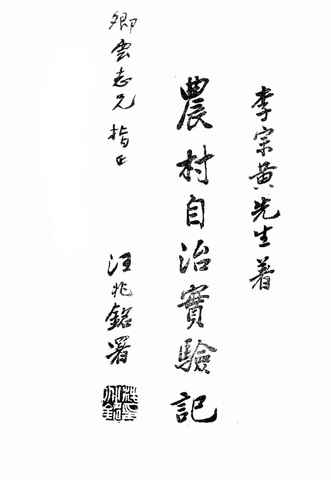 李宗黃先生著
農村自治實驗記
卿雲志兄指正
汪兆銘署